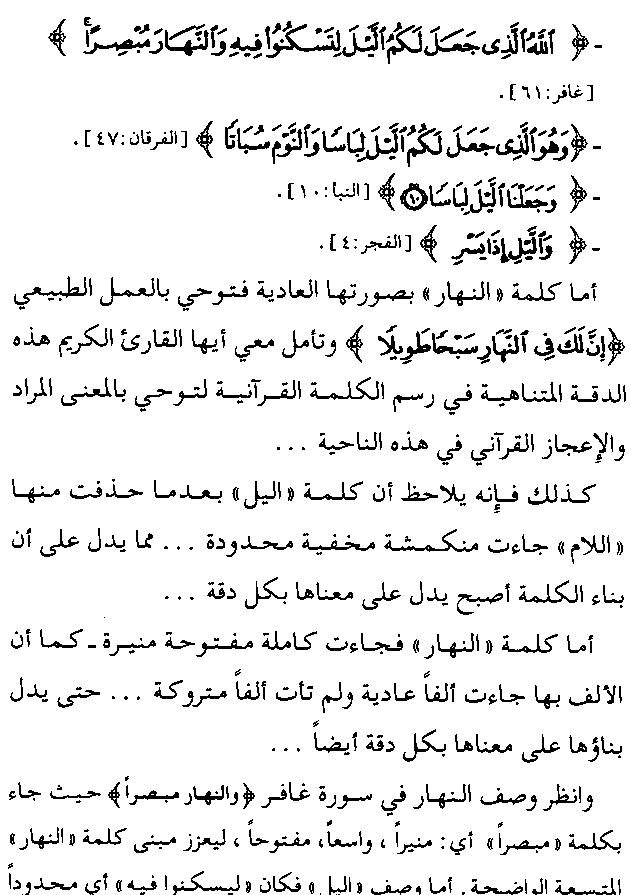 - ﴿ ٱللَّهُ ٱلَّذِى جَعَلَ لَكُمُ ٱلَّيْلَ لِتَسْكُنُوا۟ فِيهِ وَٱلنَّهَارَ مُبْصِرًا ﴾
[غافر: ٦١] .
- ﴿ وَهُوَ ٱلَّذِى جَعَلَ لَكُمُ ٱلَّيْلَ لِبَاسًا وَٱلنَّوْمَ سُبَاتًا ﴾ [الفرقان: ٤٧] .
- ﴿ وَجَعَلْنَا ٱلَّيْلَ لِبَاسًا ١٠ ﴾ [النبأ: ١٠] .
- ﴿ وَٱلَّيْلِ إِذَا يَسْرِ ﴾ [الفجر: ٤] .
أما كلمة « النهار » بصورتها العادية فتوحي بالعمل الطبيعي
﴿ إِنَّ لَكَ فِى ٱلنَّهَارِ سَبْحًا طَوِيلًا ﴾ وتأمل معي أيها القارئ الكريم هذه
الدقة المتناهية في رسم الكلمة القرآنية لتوحي بالمعنى المراد
والإعجاز القرآني في هذه الناحية ...
كذلك فإنه يلاحظ أن كلمة « اليل » بعدما حذفت منها
« اللام » جاءت منكمشة مخفية محدودة ... مما يدل على أن
بناء الكلمة أصبح يدل على معناها بكل دقة ...
أما كلمة « النهار » فجاءت كاملة مفتوحة منيرة ـ كما أن
الألف بها جاءت ألفاً عادية ولم تأت ألفاً متروكة ... حتى يدل
بناؤها على معناها بكل دقة أيضاً ...
وانظر وصف النهار في سورة غافر ﴿ والنهار مبصراً ﴾ حيث جاء
بكلمة « مبصراً » أي: منيراً ، واسعاً، مفتوحاً ، ليعزز مبنى كلمة « النهار »
المتسعة الواضحة. أما وصف « اليل » فكان « ليسكنوا فيه » أي محدوداً